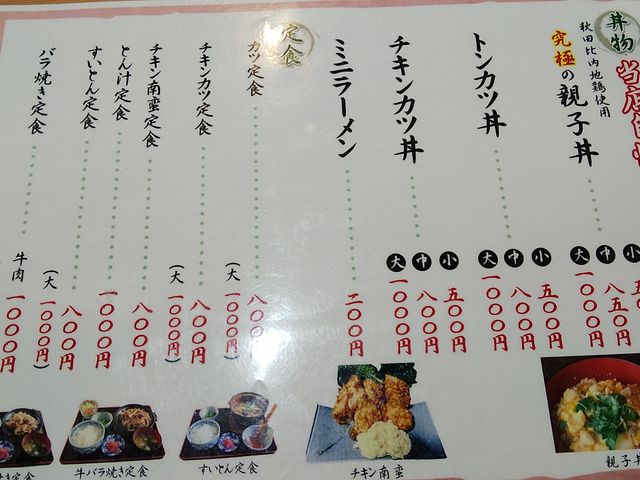 丼物
当店
秋田比内地鶏使用
究極の親子丼
小
中 八五〇円
大 一〇〇〇円
トンカツ丼
小 五〇〇円
中 八〇〇円
大 一〇〇〇円
チキンカツ丼
小 五〇〇円
中 八〇〇円
大 一〇〇〇円
ミニラーメン 二〇〇円
定食
カツ定食 八〇〇
(大) 一〇〇〇円)
チキンカツ定食 八〇〇円
(大) 一〇〇〇円)
チキン南蛮定食 八〇〇円
とん汁定食 一〇〇〇円
すいとん定食 八〇〇円
バラ焼き定食
(大) 一〇〇〇円)
牛肉 一〇〇〇円
親子丼
チキン南蛮
すいとん定食
牛バラ焼き定食
き定食